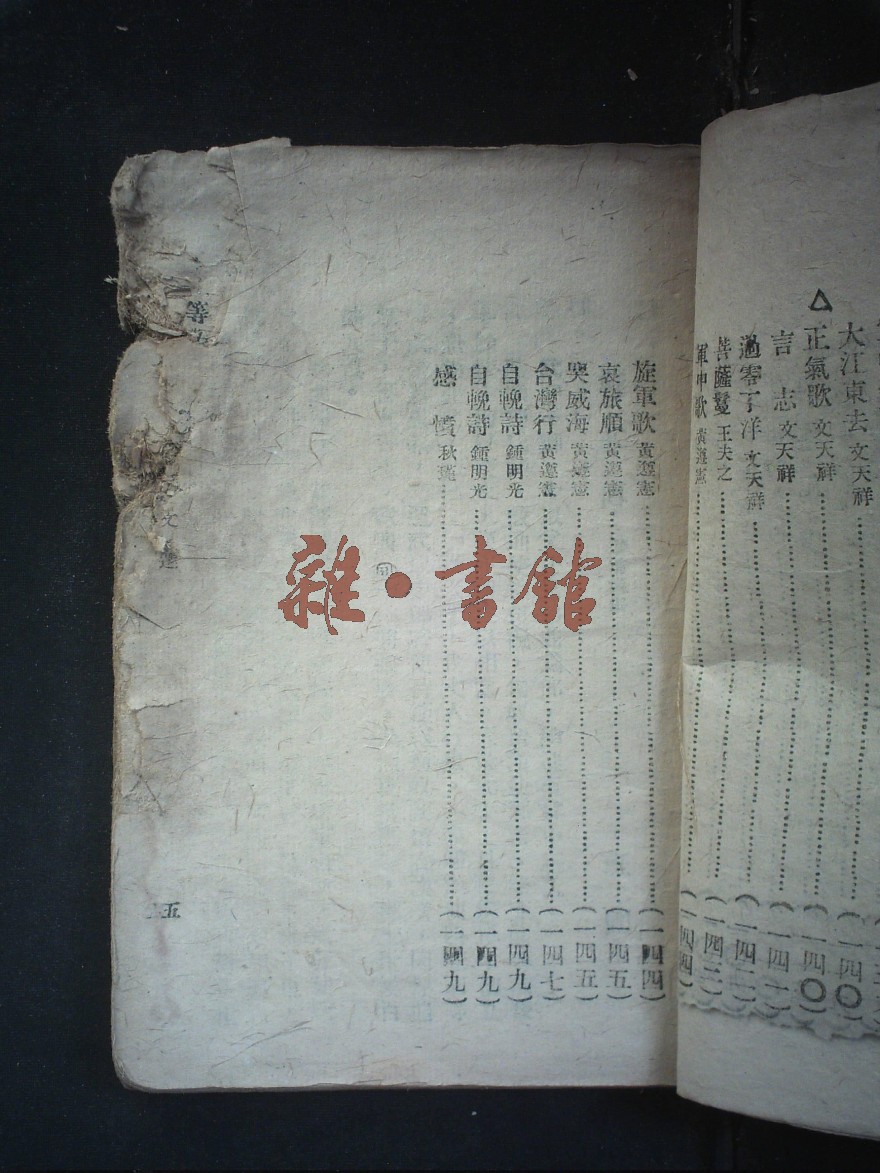 大江東去 文天祥 (一四〇)
△正氣歌 文天祥 (一四〇)
言志 文天祥 (一四一)
過零丁洋 文天祥 (一四二)
菩薩鬘 王夫之 (一四二)
軍中歌 黃遵憲 (一四四)
旋軍歌 黃遵憲 (一四四)
哀旅順 黃遵憲 (一四五)
哭威海 黃遵憲 (一四五)
台灣行 黃遵憲 (一四七)
自輓詩 鍾明光 (一四九)
自輓詩 鍾明光 (一四九)
感憤 秋瑾 (一四九)
等
文
五
雜·書館